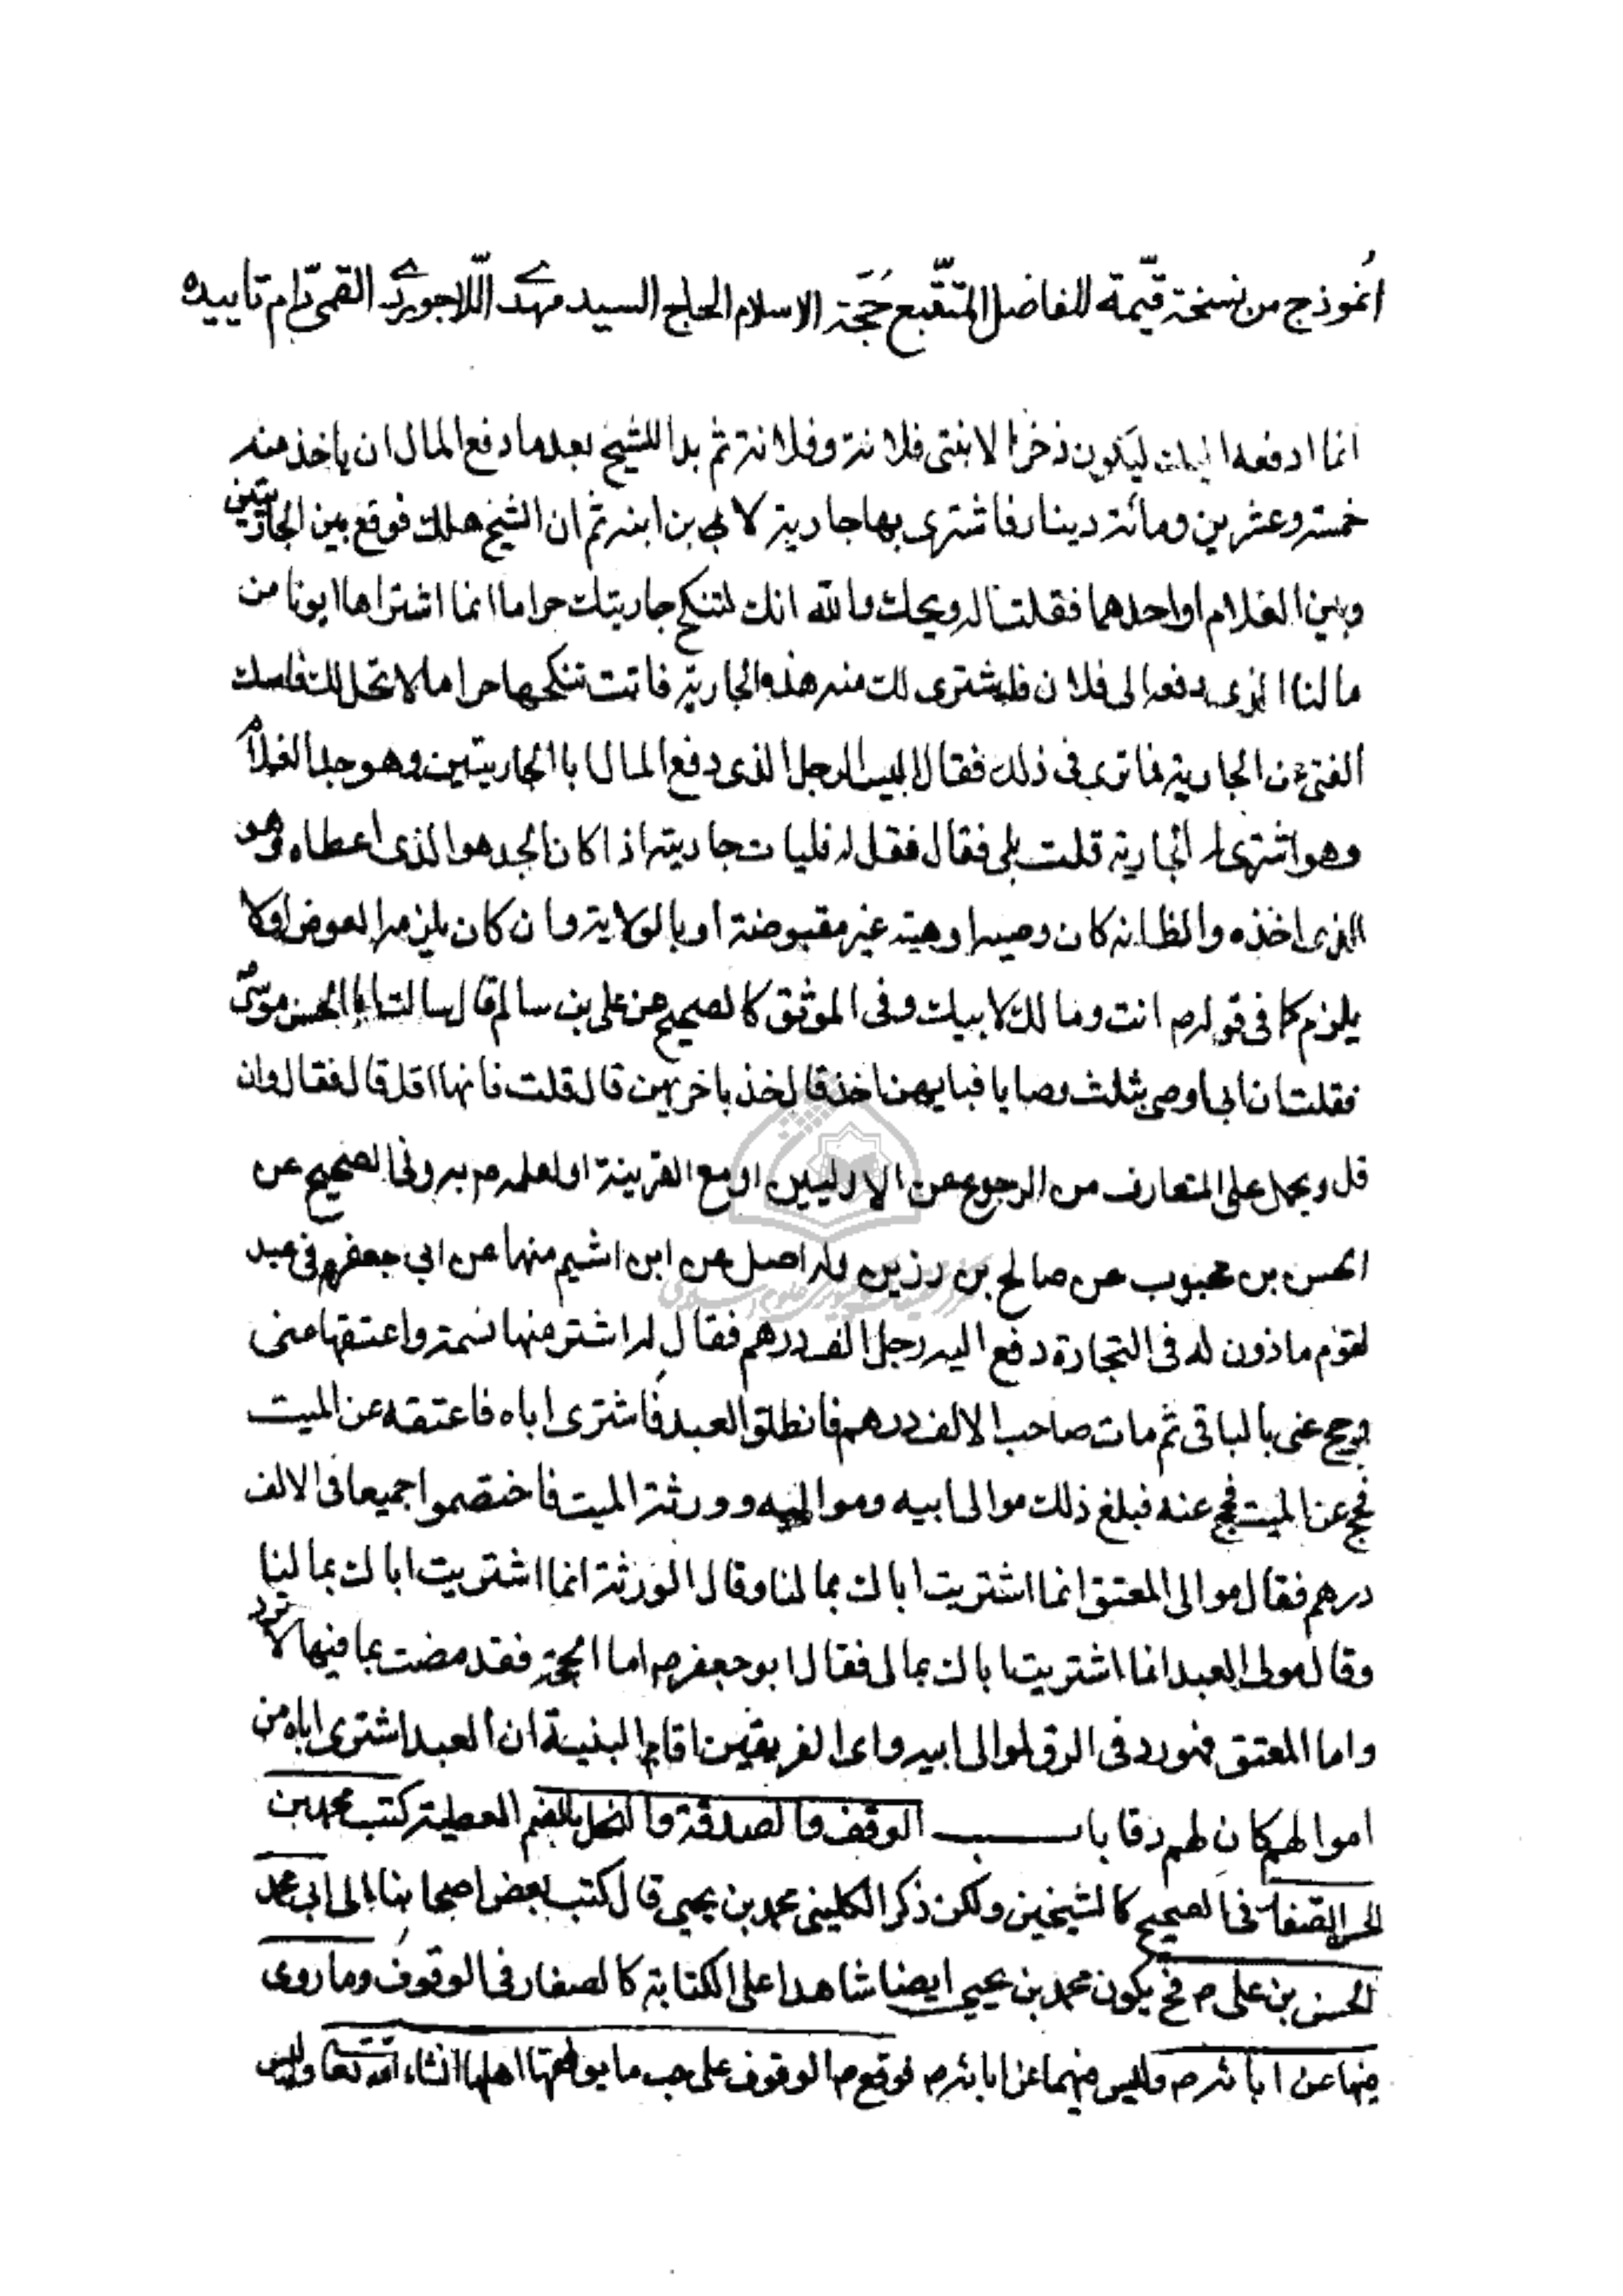 اُنموذج من نسخة قيّمة للفاضل المتتّبع حُجّة الاسلام الحاج السيد مهدى اللّاجوردى القمى دام تاييده
انما ادفعه اليك ليكون ذخرا لابنتى فلانة وفلانة ثم بدا للشيخ بعد ما دفع المال ان ياخذ منه
خمسة وعشرين ومائة دينار فاشترى بها جارية لابن ابنه ثم ان الشيخ هلك فوقع بين الجاريتين
وبين الغلام او احدهما فقلتا له ويحك والله انك لتنكح جاريتك حراما انما اشتراها ابونا من
مالنا الذى دفعه الى فلان فاشترى لك منه هذه الجارية فانت تنكحها حراما لا تحل لك فامسك
الفتى عن الجارية فما ترى فى ذلك فقال اليس الرجل الذى دفع المال ابا الجاريتين وهو جد الغلام
وهو اشترى له الجارية قلت بلى فقال فقل له فليات جاريته اذا كان الجد هو الذى اعطاه وهو
الذى اخذه والظ انه كان وصيه او هبة غير مقبوضة او بالولاية وان كان يلزمه العوض او لا
يلزم كما فى قوله ص انت ومالك لابيك وفى الموثق كالصحيح عن على بن سالم قال سالت ابا الحسن موسى ع
فقلت ان ابى اوصى بثلث وصايا فبايهن اخذ قال خذ باخريهن قال قلت فانها اقل قال فقال وان
قل ويحمل على المتعارف من الرجوع عن الاوليين او مع القرينة او لعلمه ص به وفى الصحيح عن
الحسن بن محبوب عن صالح بن رزين وله اصل عن ابن اشيم منها عن ابى جعفر ص فى عبد
لقوم ماذون له فى التجارة دفع اليه رجل الف درهم فقال له اشتر منها نسمة واعتقها عنى
وحج عنى بالباقى ثم مات صاحب الالف درهم فانطلق العبد فاشترى اباه فاعتقه عن الميت
فحج عن الميت فحج عنه فبلغ ذلك موالى ابيه ومواليه وورثة الميت فاختصموا جميعا فى الالف
درهم فقال موالى المعتق انما اشتريت اباك بمالنا وقال الورثة انما اشتريت اباك بمالنا
وقال مولى العبد انما اشتريت اباك بمالى فقال ابو جعفر ص اما الحجة فقد مضت بما فيها لا ترد
واما المعتق فهو رد فى الرق لموالى ابيه واى الفريقين اقام البينة ان العبد اشترى اباه من
اموالهم كان لهم رقا باب الوقف والصدقة والنحل بالضم العطية كتب محمد بن
الحسن الصفار فى الصحيح كالشيخين ولكن ذكر الكلينى محمد بن يحيى قال كتب بعض اصحابنا الى ابى محمد
الحسن بن على ص فح يكون محمد بن يحيى ايضا شاهدا على الكتابة كالصفار فى الوقوف وما روى
فيها عن ابائه ص وليس فيهما عن ابائه ص فوقع ص الوقوف على حسب ما يوقفها اهلها انشاء الله تعا وليس